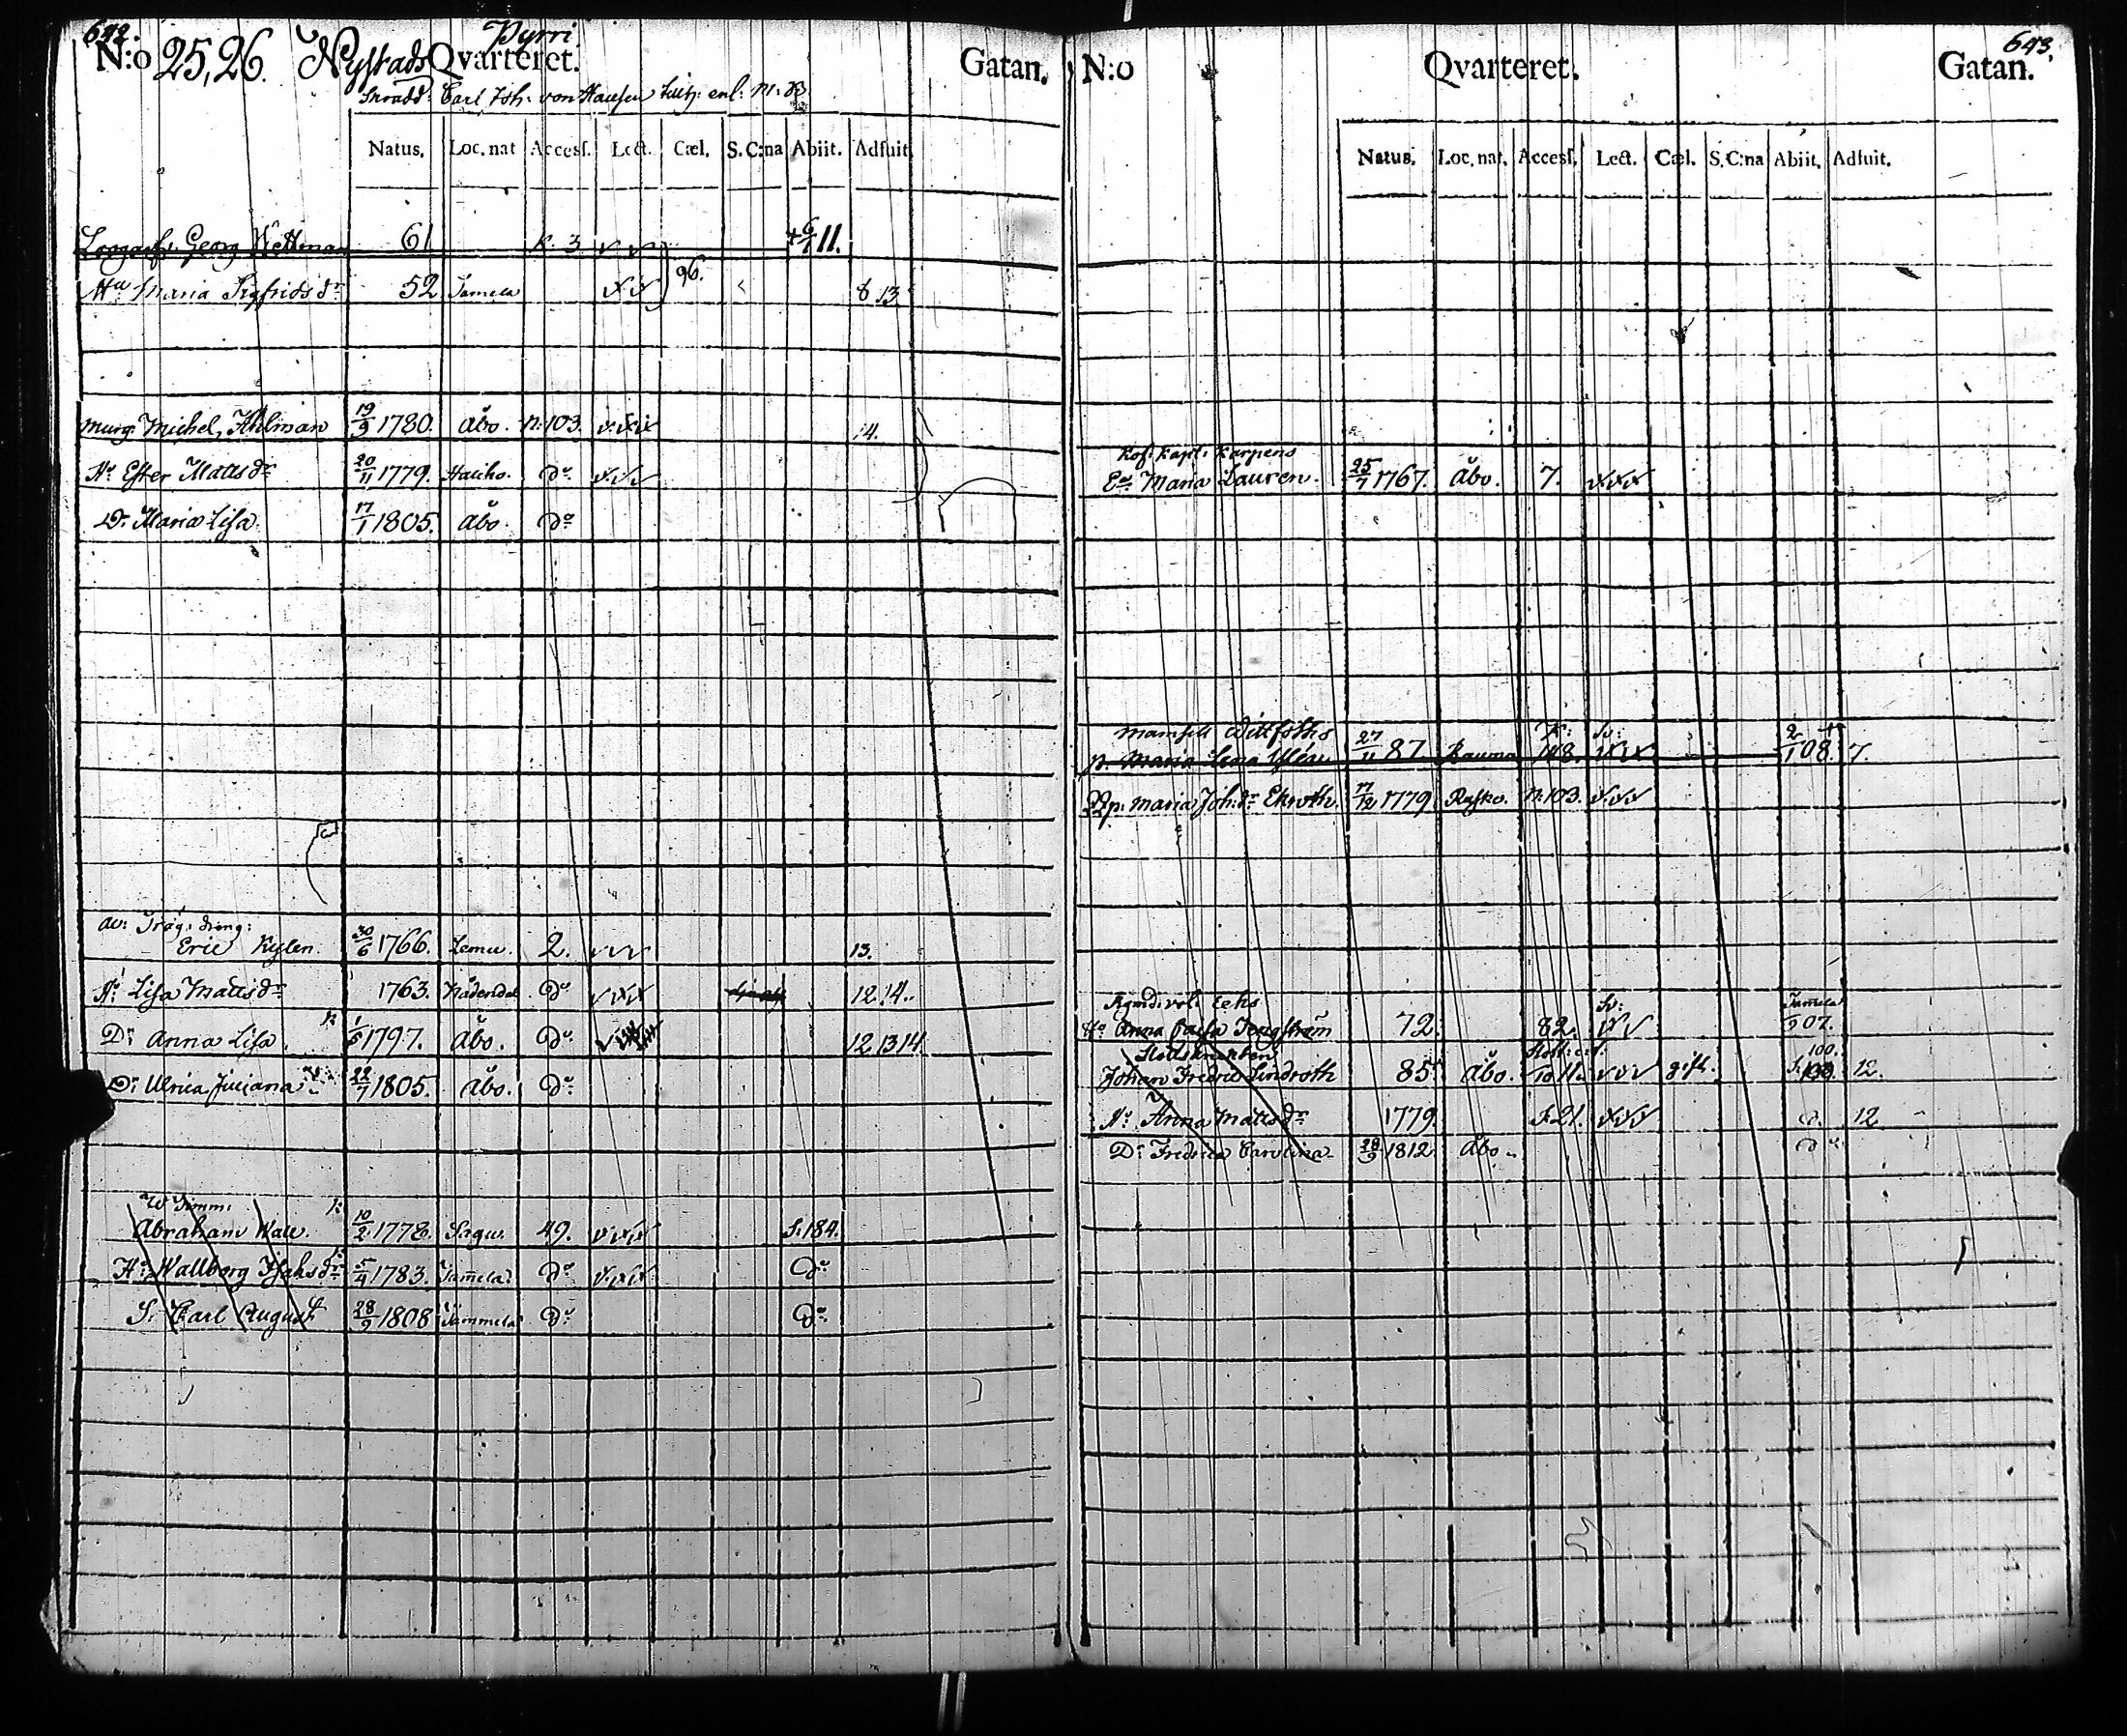 642.
N:o 25, 26. Nystads Qvarteret. Pyrri Gatan.
Carl Joh. von Hausen enl. M.
Natus. Loc. nat Access. Lect. Cæl. S. C:na Abiit. Adfuit.
Georg Wettman 61 K. 3 v v + 6/1 11.
Hu Maria Sigfridsdr 52 Tamela 96. 8 13
Murg. Michel Ahlman 19/9 1780. Åbo. n. 103. 14.
Hu Ester Mattsdr 20/11 1779. Hauho. do
Dr Maria Lisa. 17/1 1805. Åbo. do
Eric Kylen. 30/6 1766. Lemu. 2. v v v 13.
Hu Lisa Mattsdr 1763. Nådendal do 12. 14.
Dr Anna Lisa. 1/5 1797. Åbo. do 12 13 14
Dr Ulrica Juliana 22/7 1805. Åbo. do
W. Timm:
Abraham Wall. 10/2 1778. Sagu. 49. S. 184.
Hu Wallborg Isaksdr 5/4 1783. Tamela do do
S. Carl August 28/9 1808 Tammela do do
643.
N:o Qvarteret. Gatan.
Natus. Loc. nat. Access. Lect. Cæl. S. C:na Abiit. Adfuit.
Kof. Kapt. Karpens
Ea Maria Lauren. 25/7 1767. Åbo. 7.
Mamsell Wittfoths
p. Maria Lena 27/11 87. Rauma K: 148. Sv: 2/1 08. 7.
Pp. Maria Joh:dr Ekroth. 17/12 1779 Rasko. n. 103.
Eks
Hu Anna Caisa Ljungström 72. 82 Sv: Tamela /9 07.
Johan Fredric Lindroth 85. Åbo. /10 11. v v v gift. S. 100. 12.
Hu Anna Mattsdr 1779. S. 21. do 12
Dr Fredrica Carolina 28/9 1812. Åbo. do